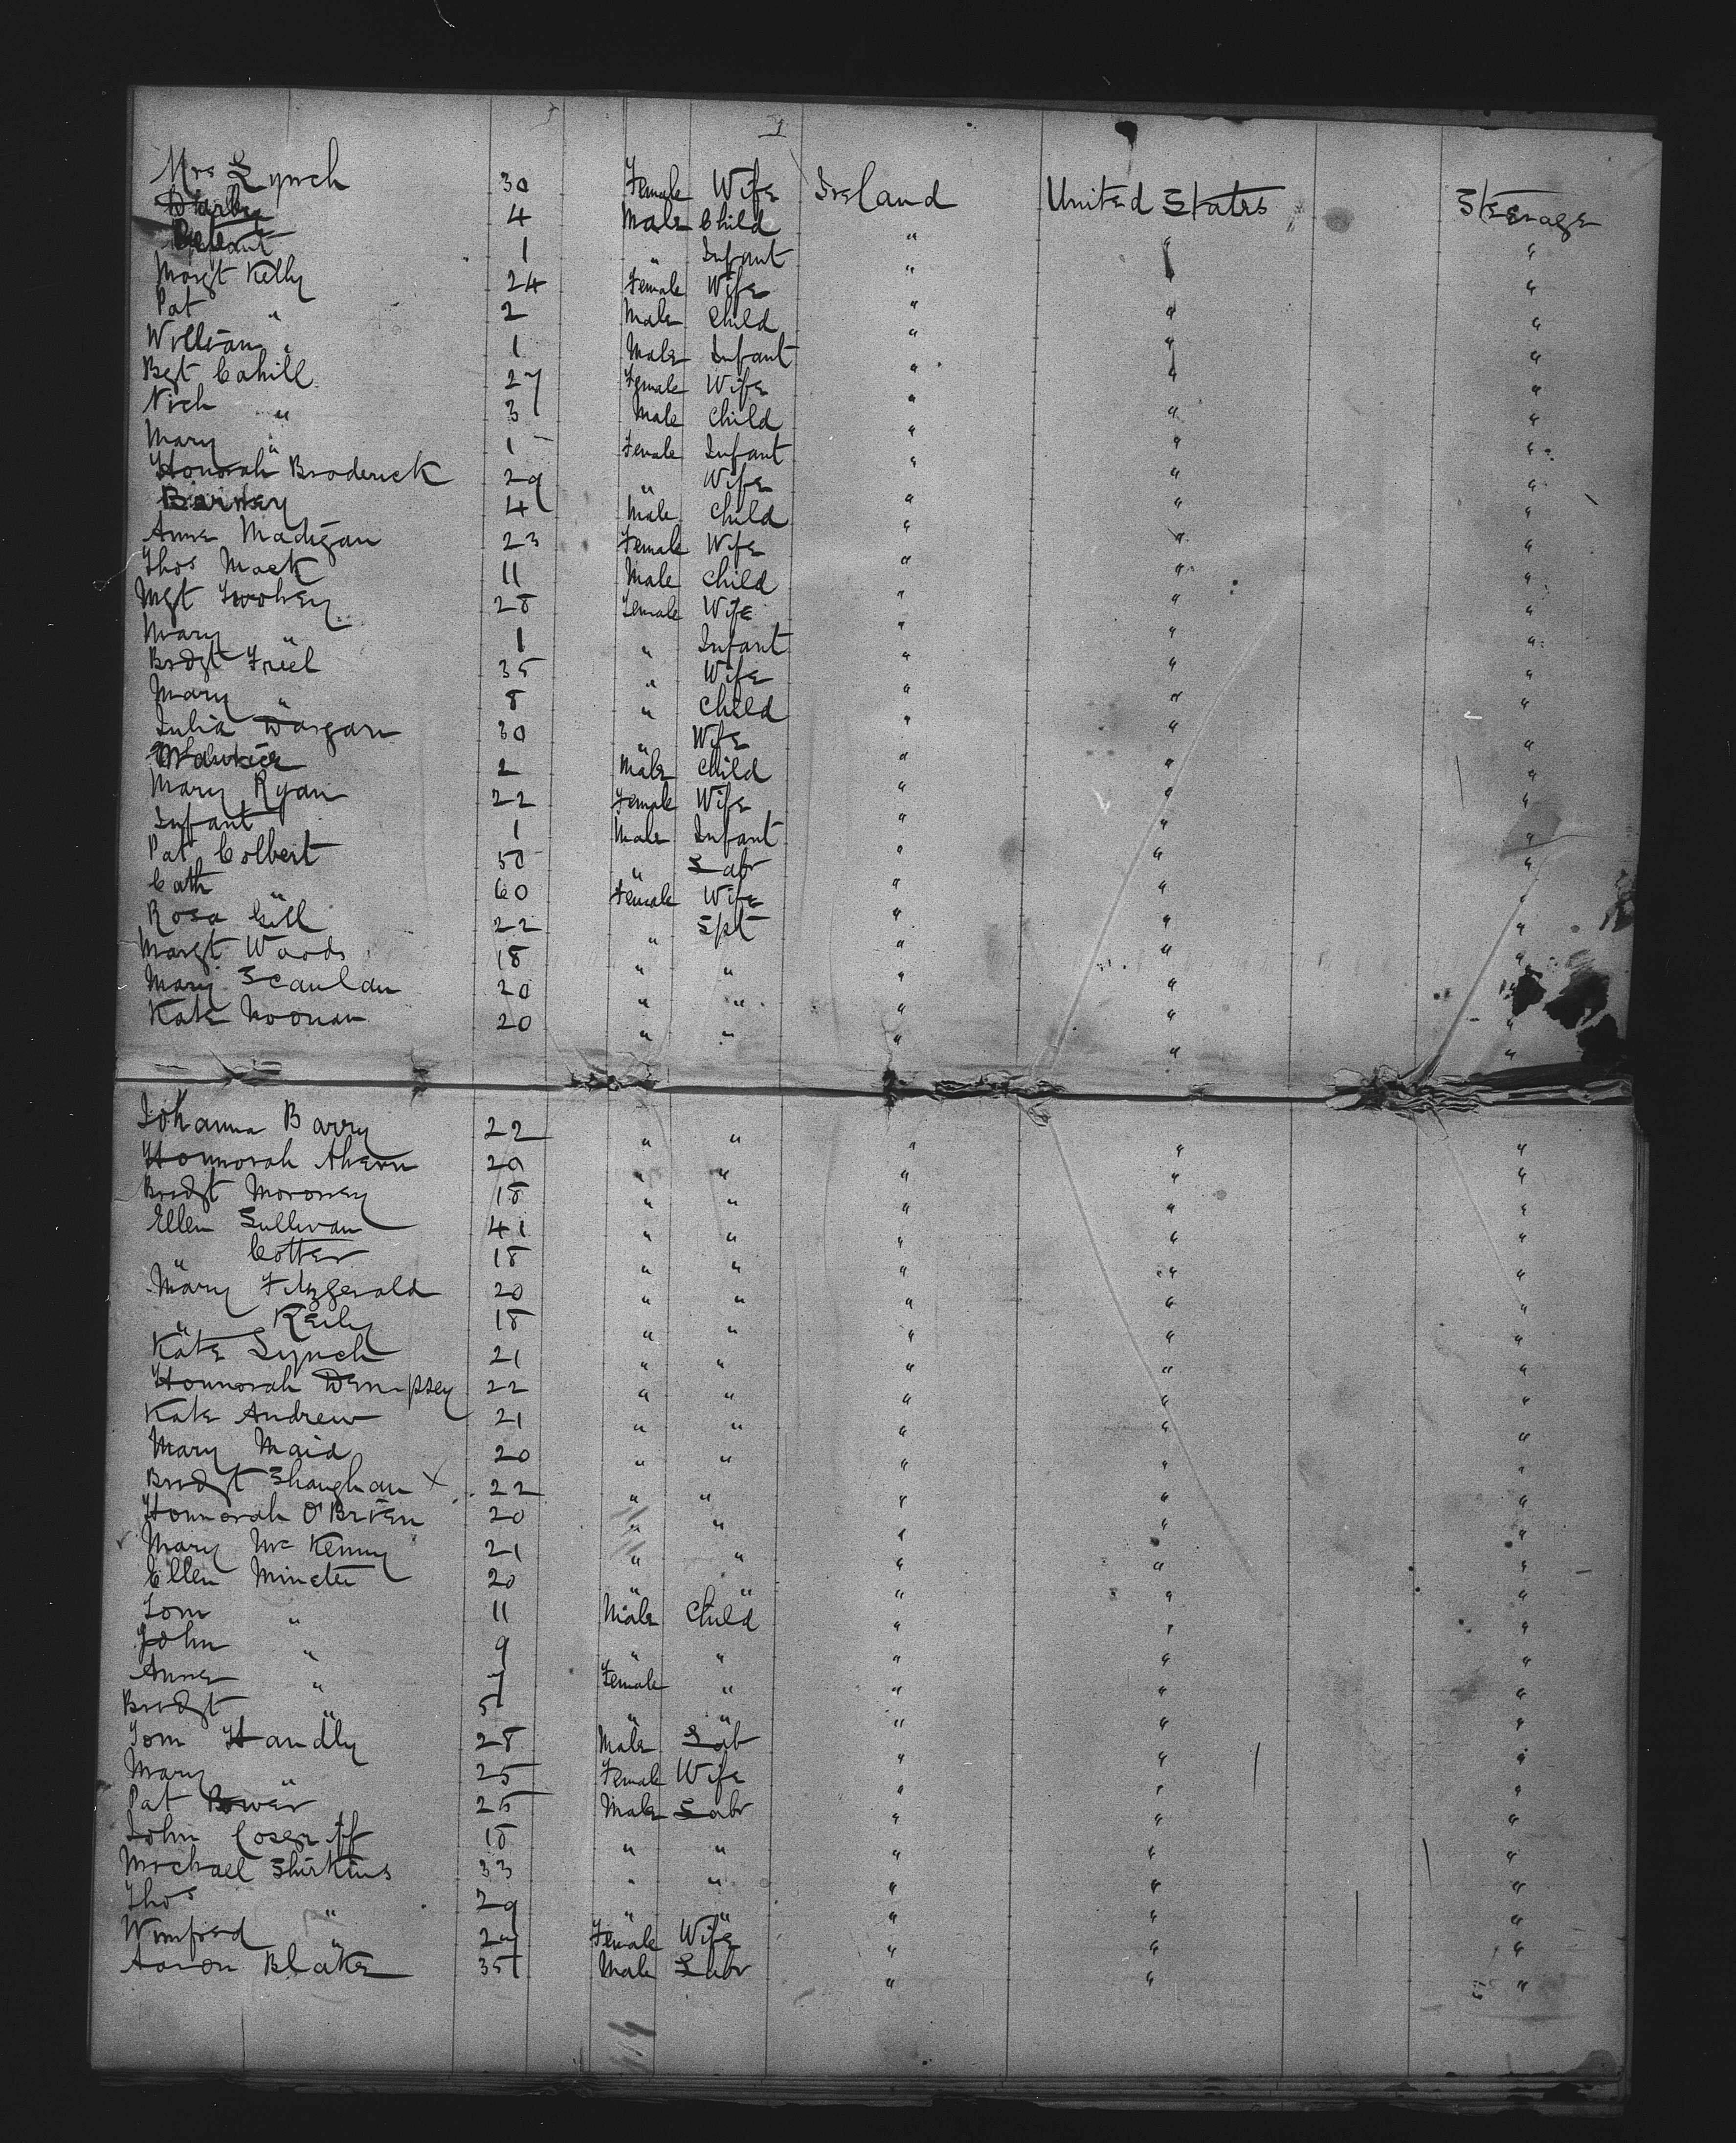 1
Mrs Lynch 30 Female Wife Ireland United States Steerage
Darby 4 Male Child " " "
Infant 1 " Infant " " "
Margt Kelly 24 Female Wife " " "
Pat " 2 Male Child " " "
William " 1 Male Infant " " "
Bgt Cahill 27 Female Wife " " "
Nich " 3 Male Child " " "
Mary " 1 Female Infant " " "
Honorah Broderick 29 " Wife " " "
4 Male Child " " "
Anne Madigan 23 Female Wife " " "
Thos Mack 11 Male Child " " "
Mgt Twohey 28 Female Wife " " "
Mary " 1 " Infant " " "
Bridgt Friel 35 " Wife " " "
Mary " 8 " Child " " "
Julia Dargan 30 " Wife " " "
2 Male Child " " "
Mary Ryan 22 Female Wife " " "
Infant 1 Male Infant " " "
Pat Colbert 50 " Labr " " "
Cath " 60 Female Wife " " "
Rosa Gill 22 " Spt " " "
Margt Woods 18 " " " " "
Mary Scanlan 20 " " " " "
Kate Noonan 20 " " " " "
Johanna Barry 22 " " " " "
Honnorah Ahern 20 " " " " "
Bridgt Moroney 18 " " " " "
Ellen Sullivan 41 " " " " "
" Cotter 18 " " " " "
Mary Fitzgerald 20 " " " " "
" Reily 18 " " " " "
Kate Lynch 21 " " " " "
Honnorah Dempsey 22 " " " " "
Kate Andrew 21 " " " " "
Mary Maid 20 " " " " "
Bridgt Shaughan x 22 " " " " "
Honnorah O'Brien 20 " " " " "
Mary McKenny 21 " " " " "
Ellen Mincter 20 " " " " "
Tom " 11 Male Child " " "
John " 9 " " " " "
Anne " 7 Female " " " "
Bridgt " 5 " " " " "
Tom Handly 28 Male Lab " " "
Mary " 25 Female Wife " " "
Pat Power 25 Male Labr " " "
John Cosgriff 18 " " " " "
Michael Shirkins 33 " " " " "
Thos " 29 " " " " "
Winifred " Female Wife " " "
Aaron Blake 35 Male Labr " " "